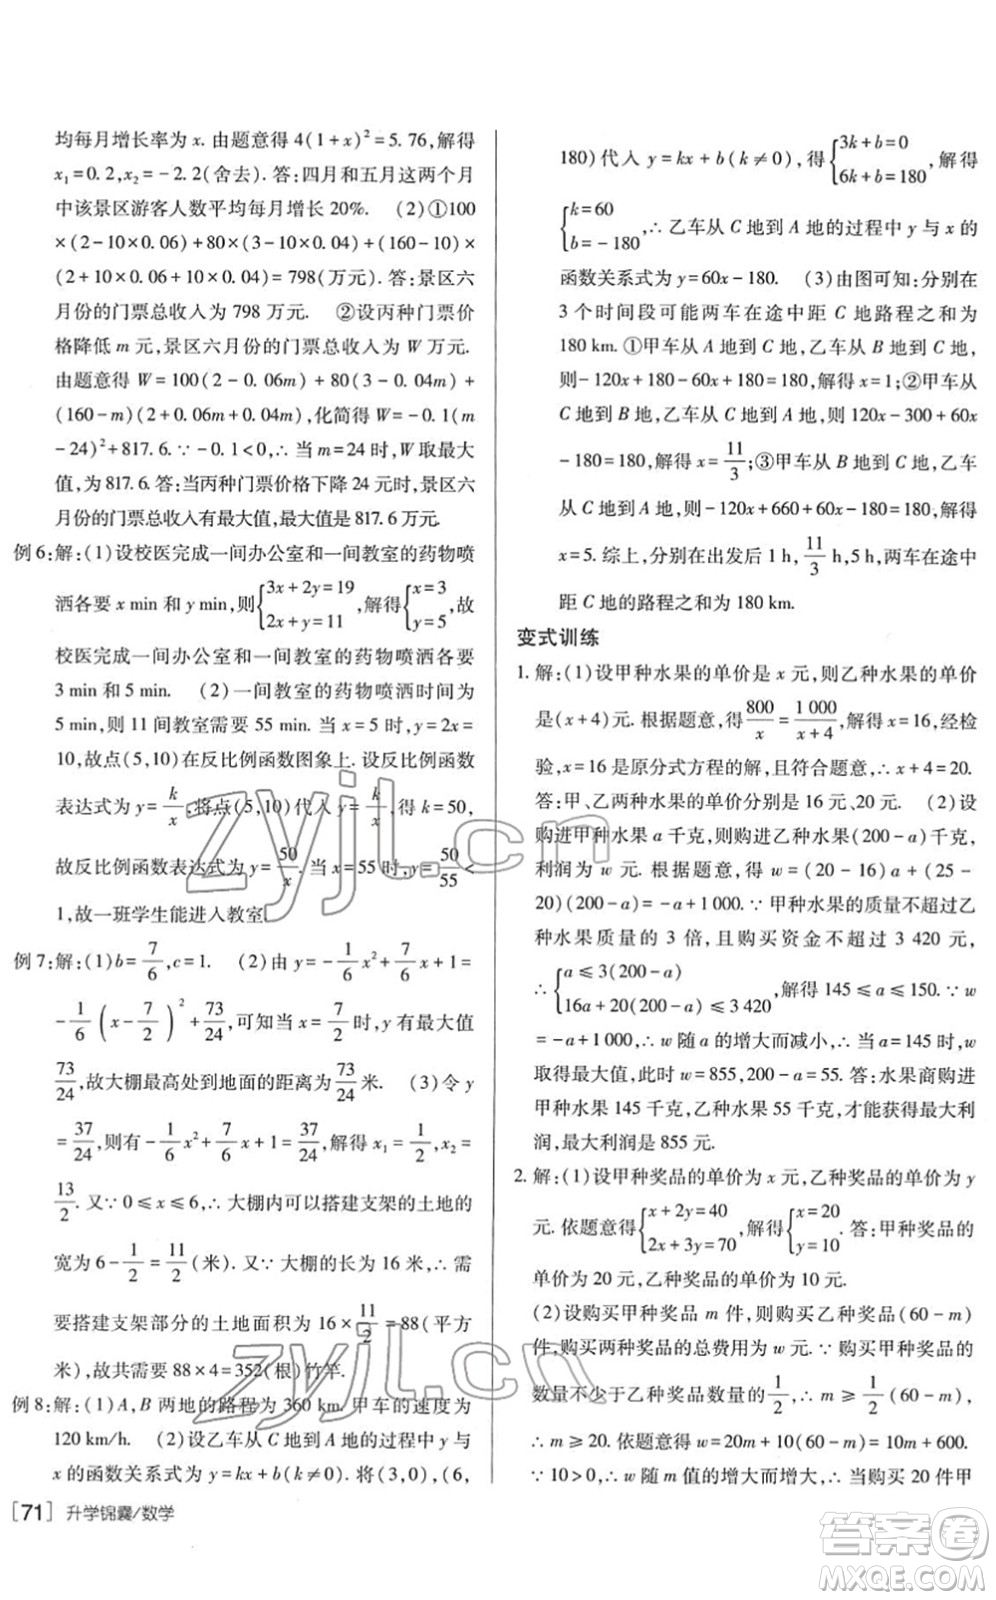 均每月增长率为 x. 由题意得 4(1+x)²=5.76,解得
x₁=0.2,x₂=-2.2(舍去). 答:四月和五月这两个月
中该景区游客人数平均每月增长 20%. (2)①100
×(2-10×0.06)+80×(3-10×0.04)+(160-10)×
(2+10×0.06+10×0.04)=798(万元). 答:景区六
月份的门票总收入为 798 万元. ②设丙种门票价
格降低 m 元,景区六月份的门票总收入为 W 万元.
由题意得 W=100(2-0.06m)+80(3-0.04m)+
(160-m)(2+0.06m+0.04m),化简得 W=-0.1(m
-24)²+817.6.∵-0.1<0,∴当 m=24 时,W 取最大
值,为 817.6. 答:当丙种门票价格下降 24 元时,景区六
月份的门票总收入有最大值,最大值是 817.6 万元.
例 6:解:(1)设校医完成一间办公室和一间教室的药物喷
洒各要 x min 和 y min,则{3x+2y=19 2x+y=11,解得{x=3 y=5,故
校医完成一间办公室和一间教室的药物喷洒各要
3 min 和 5 min. (2)一间教室的药物喷洒时间为
5 min,则 11 间教室需要 55 min. 当 x=5 时,y=2x=
10,故点(5,10)在反比例函数图象上. 设反比例函数
表达式为 y=k/x,将点(5,10)代入 y=k/x,得 k=50,
故反比例函数表达式为 y=50/x. 当 x=55 时,y=50/55<
1,故一班学生能进入教室.
例 7:解:(1)b=7/6,c=1. (2)由 y=-1/6x²+7/6x+1=
-1/6(x-7/2)²+73/24,可知当 x=7/2时,y 有最大值
73/24,故大棚最高处到地面的距离为73/24米. (3)令 y
=37/24,则有-1/6x²+7/6x+1=37/24,解得 x₁=1/2,x₂=
13/2. 又∵0≤x≤6,∴大棚内可以搭建支架的土地的
宽为 6-1/2=11/2(米). 又∵大棚的长为 16 米,∴需
要搭建支架部分的土地面积为 16×11/2=88(平方
米),故共需要 88×4=352(根)竹竿.
例 8:解:(1)A,B 两地的路程为 360 km,甲车的速度为
120 km/h. (2)设乙车从 C 地到 A 地的过程中 y 与
x 的函数关系式为 y=kx+b(k≠0). 将(3,0),(6,
[71] 升学锦囊/数学
180)代入 y=kx+b(k≠0),得{3k+b=0 6k+b=180,解得
{k=60 b=-180,∴乙车从 C 地到 A 地的过程中 y 与 x 的
函数关系式为 y=60x-180. (3)由图可知:分别在
3 个时间段可能两车在途中距 C 地路程之和为
180 km. ①甲车从 A 地到 C 地,乙车从 B 地到 C 地,
则-120x+360-60x+180=180,解得 x=1;②甲车从
C 地到 B 地,乙车从 C 地到 A 地,则 120x-300+60x
-180=180,解得 x=11/3;③甲车从 B 地到 C 地,乙车
从 C 地到 A 地,则-120x+660+60x-180=180,解得
x=5. 综上,分别在出发后 1 h,11/3 h,5 h,两车在途中
距 C 地的路程之和为 180 km.
变式训练
1. 解:(1)设甲种水果的单价是 x 元,则乙种水果的单价
是(x+4)元. 根据题意,得800/x=1 000/(x+4),解得 x=16,经检
验,x=16 是原分式方程的解,且符合题意,∴x+4=20.
答:甲、乙两种水果的单价分别是 16 元、20 元. (2)设
购进甲种水果 a 千克,则购进乙种水果(200-a)千克,
利润为 w 元. 根据题意,得 w=(20-16)a+(25-
20)(200-a)=-a+1 000.∵甲种水果的质量不超过乙
种水果质量的 3 倍,且购买资金不超过 3 420 元,
∴{a≤3(200-a) 16a+20(200-a)≤3 420,解得 145≤a≤150.∵w
=-a+1 000,∴w 随 a 的增大而减小,∴当 a=145 时,w
取得最大值,此时 w=855,200-a=55. 答:水果商购进
甲种水果 145 千克,乙种水果 55 千克,才能获得最大利
润,最大利润是 855 元.
2. 解:(1)设甲种奖品的单价为 x 元,乙种奖品的单价为 y
元. 依题意得{x+2y=40 2x+3y=70,解得{x=20 y=10. 答:甲种奖品的
单价为 20 元,乙种奖品的单价为 10 元.
(2)设购买甲种奖品 m 件,则购买乙种奖品(60-m)
件,购买两种奖品的总费用为 w 元.∵购买甲种奖品的
数量不少于乙种奖品数量的1/2,∴m≥1/2(60-m),
∴m≥20. 依题意得 w=20m+10(60-m)=10m+600.
∵10>0,∴w 随 m 值的增大而增大,∴当购买 20 件甲
zyjl.cn
zyjl.cn
答案圈
MXQE.COM